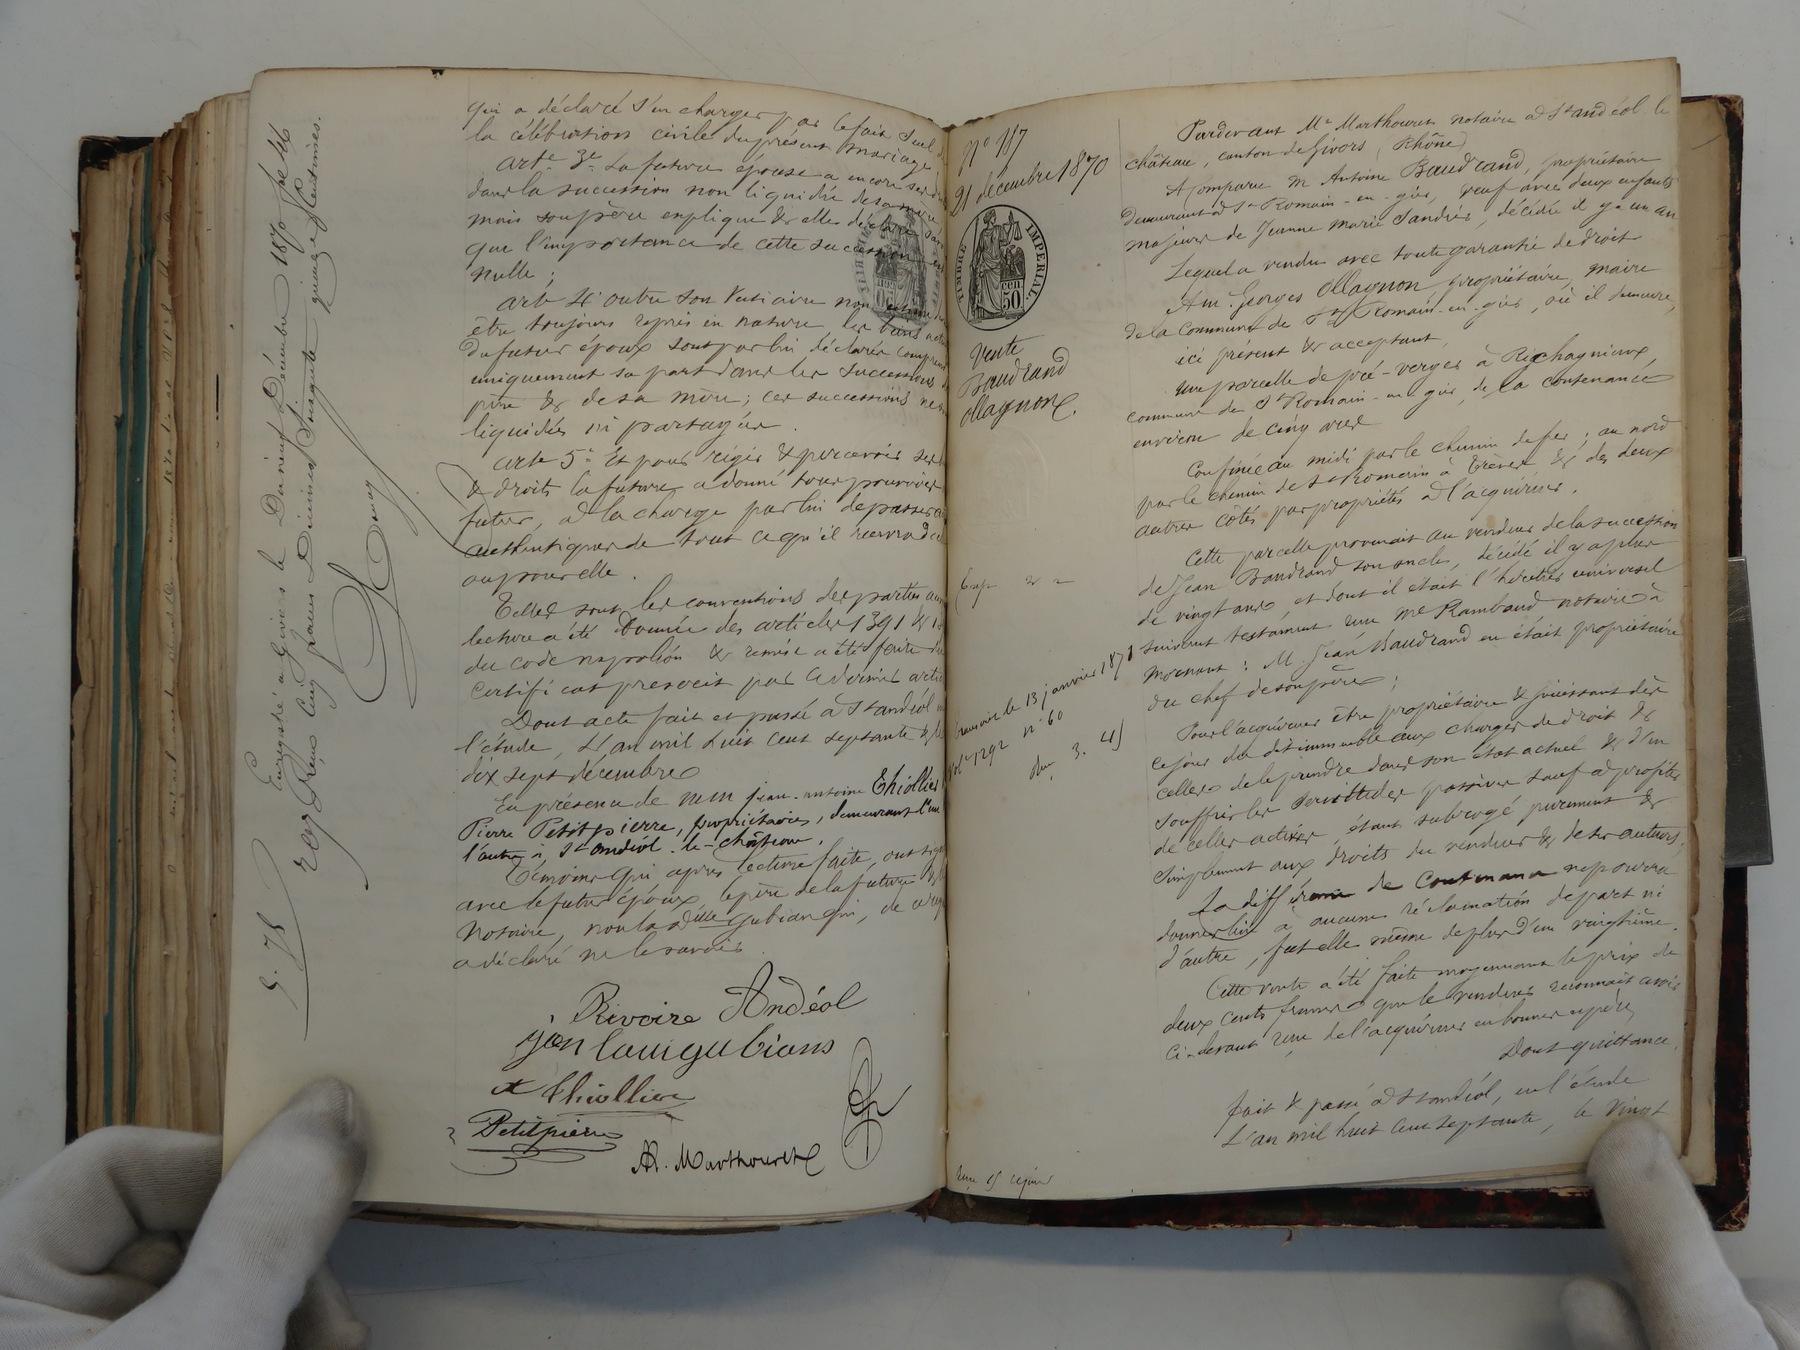 qui a déclaré s'en charger par le fait seul de
la célébration civile du présent mariage
arte 3e La future épouse a encore ses
dans la succession non liquidée de sa mère
mais son père explique & elle déclare
que l'importance de cette succession est
nulle ;
arte 4e outre son vestiaire non
être toujours repris en nature, les biens
du futur époux sont par lui déclarés comprendre
uniquement sa part dans les successions de
père & de sa mère ; ces successions ne
liquidées ni partagées.
arte 5e Et pour régir & percevoir ses
& droits la future a donné tous pouvoirs
futur, à la charge par lui de passer
authentiques de tout ce qu'il recevra de
ou pour elle.
Telles sont les conventions des parties
lecture a été donnée des articles 1391 &
du code napoléon & remise a été faite du
certificat prescrit par ce dernier article
Dont acte fait et passé à St andéol
l'étude, L'an mil huit cent septante & le
dix sept décembre
En présence de mm jean-antoine Thiollier
Pierre Petitpierre, propriétaires, demeurant l'un
l'autre à St andéol-le-château.
Témoins qui après lecture faite, ont signé
avec le futur époux, le père de la future & le
notaire, non la dlle Gubian qui, de ce
a déclaré ne le savoir
Rivoire Andéol
jan loui gubians
Thiollier
Petitpierre
Marthouret
Enregistré à Givors le Dix neuf Décembre 1870 fo 46
Reçu Cinq francs Décimes Soixante quinze Centimes.
5. 75
No 117
21 décembre 1870
TIMBRE IMPERIAL
50 cen.
Vente
Baudrand
Ollagnon
Transcrit le 13 janvier 1871
Vol 1292 no 60
3. 45
Pardevant Me Marthouret notaire à St andéol le
château, canton de Givors (Rhône)
A comparu M Antoine Baudrand, propriétaire
demeurant à St Romain-en-gier, veuf avec deux enfants
majeurs de Jeanne Marie Sandrés, décédée il y a un an
Lequel a vendu avec toute garantie de droit
A m. Georges Ollagnon propriétaire, maire
de la Commune de St Romain-en-gier, où il demeure,
ici présent & acceptant,
une parcelle de pré-verger à Richagnieux,
commune de St Romain-en-gier, de la contenance
environ de cinq ares
Confinée au midi par le chemin de fer ; au nord
par le chemin de St Romain à Trèves, & des deux
autres côtés par propriétés à l'acquéreur.
Cette parcelle provenait au vendeur de la succession
de Jean Baudrand son oncle, décédé il y a plus
de vingt ans, et dont il était l'héritier universel
suivant testament reçu Me Rambaud notaire à
Mornant : M. Jean Baudrand en était propriétaire
du chef de son père ;
Pour l'acquéreur être propriétaire & jouissant dès
ce jour du dit immeuble aux charges de droit &
celles de le prendre dans son état actuel & d'en
souffrir les servitudes passives sauf à profiter
de celles actives, étant subrogé purement &
simplement aux droits du vendeur & de ses auteurs,
La différence de Contenance ne pourra
donner lieu à aucune réclamation de part ni
d'autre, fut elle même de plus d'un vingtième.
Cette vente a été faite moyennant le prix de
deux cents francs que le vendeur reconnait avoir
ci-devant reçu de l'acquéreur en bonnes espèces
Dont quittance.
fait & passé à St andéol, en l'étude
L'an mil huit cent septante, le vingt